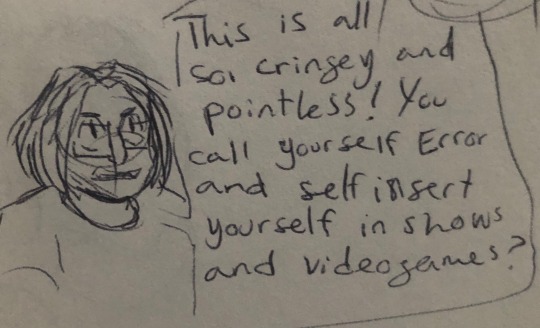 This is all
so, cringey and
pointless! You
call yourself Error
and self insert
yourself in shows
and videogames?